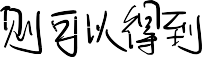 则可以得到